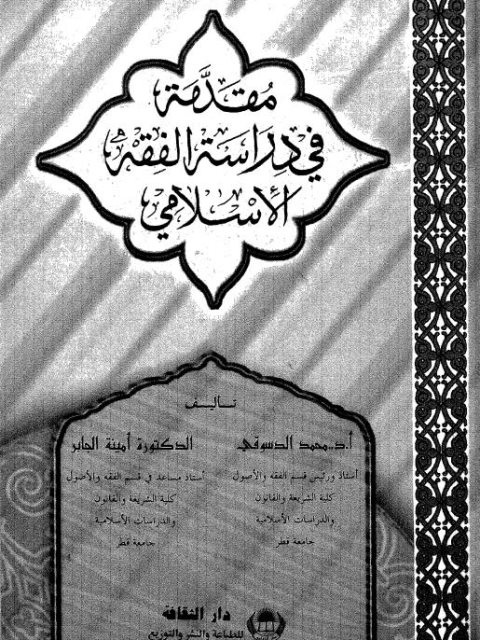 مُقَدَّمَة
في دِرَاسَة الفِقْه
الإِسْلَامِي
تأليف
أ.د. محمد الدسوقي
أستاذ ورئيس قسم الفقه والأصول
كلية الشريعة والقانون
والدراسات الأسلامية
جامعة قطر
الدكتورة أمينة الجابر
أستاذ مساعد في قسم الفقه والأصول
كلية الشريعة والقانون
والدراسات الأسلامية
جامعة قطر
دار الثقافة
للطباعة والنشر والتوزيع